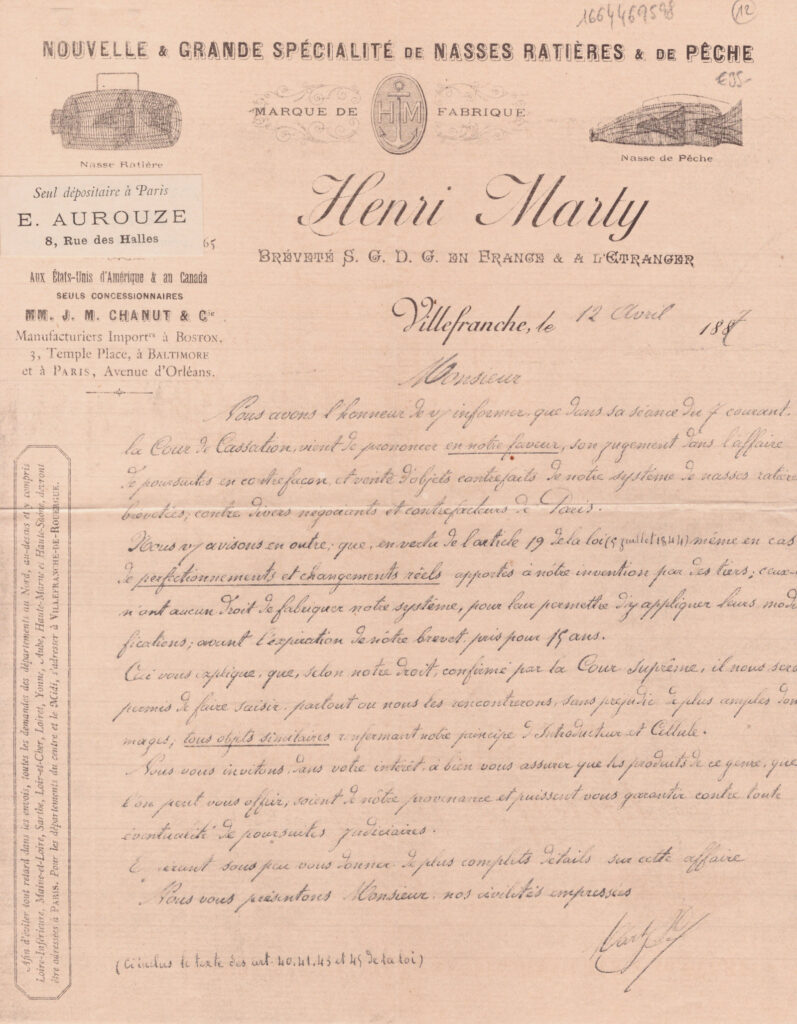 1664469598
12
NOUVELLE & GRANDE SPÉCIALITÉ DE NASSES RATIÈRES & DE PÊCHE
€95-
MARQUE DE FABRIQUE
HM
Nasse Ratière
Nasse de Pêche
Seul dépositaire à Paris
E. AUROUZE
8, Rue des Halles
65
Henri Marty
BREVETÉ S. G. D. G. EN FRANCE & A L'ETRANGER
Aux États-Unis d'Amérique & au Canada
SEULS CONCESSIONNAIRES
MM. J. M. CHANUT & Cie
Manufacturiers Importrs à BOSTON,
3, Temple Place, à BALTIMORE
et à PARIS, Avenue d'Orléans.
Villefranche, le 12 Avril 1887
Monsieur
Nous avons l'honneur de v/ informer, que dans sa séance du 7 courant.
la Cour de Cassation, vient de prononcer en notre faveur, son jugement dans l'affaire
de poursuites en contrefaçon et vente d'objets contrefaits de notre système de nasses ratière
brevetées, contre divers negociants et contrefacteurs de Paris.
Nous v/ avisons en outre, que, en vertu de l'article 19 de la loi (5 juillet 1844) même en cas
de perfectionnements et changements réels apportés à nôtre invention par des tiers; ceux-
n'ont aucun droit de fabriquer notre système, pour leur permettre d'y appliquer leurs modi
fications; avant l'expiration de nôtre brevet, pris pour 15 ans.
Ceci vous explique, que, selon notre droit, confirmé par la Cour Suprême, il nous sera
permis de faire saisir partout ou nous les rencontrerons, sans prejudice de plus amples dom
mages, tous objets similaires renfermant notre principe d'Introducteur et Cellule.
Nous vous invitons, dans votre intérêt, à bien vous assurer que les produits de ce genre, que
l'on peut vous offrir, soient de nôtre provenance et puissent vous garantir contre toute
éventualité de poursuites judiciaires.
sous peu vous donner de plus complets détails sur cette affaire
Nous vous présentons Monsieur nos civilités empressées
Marty
(Ci inclus le texte des art. 40.41.43 et 45 de la loi)
Afin d'éviter tout retard dans les envois, toutes les demandes des départements du Nord, au-dessus et y compris
Loire-Inférieure, Maine-et-Loire, Sarthe, Loir-et-Cher, Loiret, Yonne, Aube, Haute-Marne et Haute-Saône, devront
être adressées à PARIS. Pour les départements du centre et le Midi, s'adresser à VILLEFRANCHE-DE-ROUERGUE.